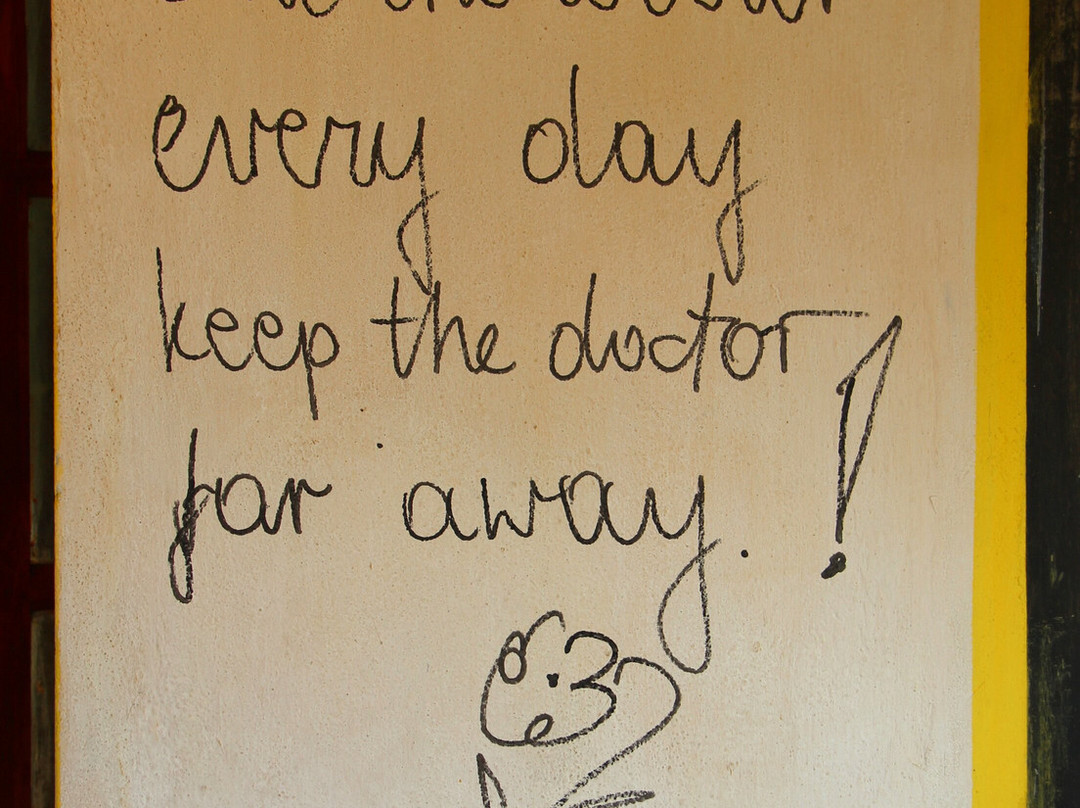 every day
keep the doctor
far away. !